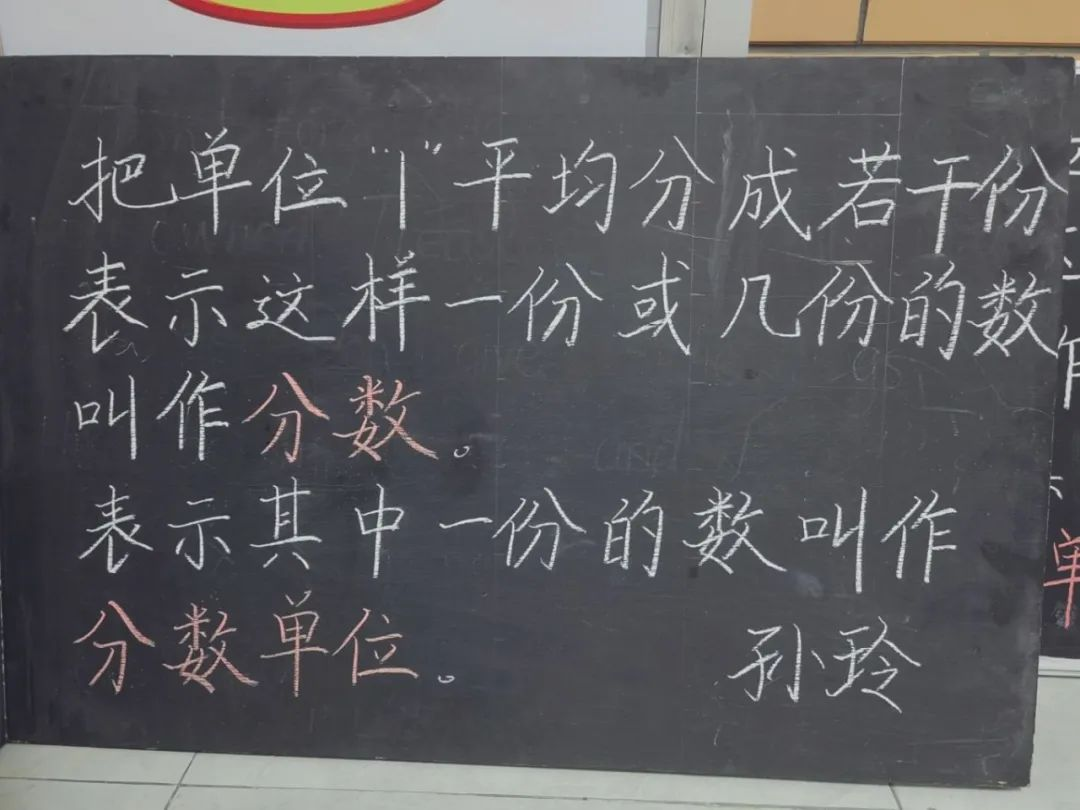 把单位“1”平均分成若干份
表示这样一份或几份的数
叫作分数。
表示其中一份的数叫作
分数单位。
孙玲
单